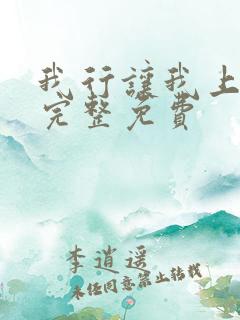 我行讓我上
完整免費
李逍遥
未经同意禁止转载